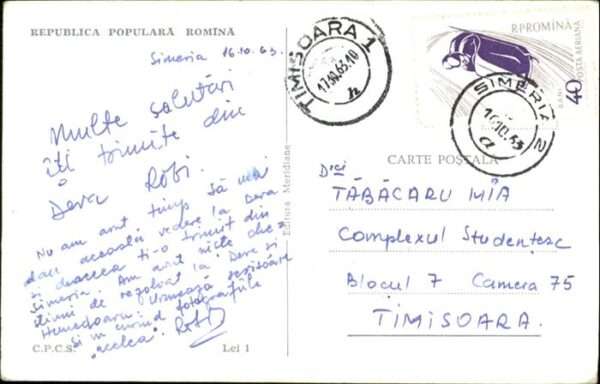 REPUBLICA POPULARA ROMÎNA
Simeria 16.10.63.
Multe salutări
îți trimite din
Deva Robi.
Nu am avut timp să mai
dau această vedere la Deva
și deaceea ți-o trimit din
Simeria. Am avut niște che-
stiuni de rezolvat la Deva și
Hunedoara. Urmează scrisoare
și în curînd fotografiile
"acelea". Robi
C.P.C.S.
Lei 1
Editura Meridiane
TIMIȘOARA 1
17.10.63.10
R.P.ROMÎNA
POSTA AERIANA
40 BANI
SIMERIA 2
16.10.63
a
CARTE POȘTALĂ
D-rei
TĂBĂCARU MÎA
Complexul Studențesc
Blocul 7 Camera 75
TIMISOARA.